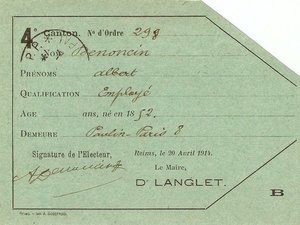 4e Canton. N° d'Ordre 298
Nom Denoncin
PRÉNOMS albert
QUALIFICATION Employé
AGE ans, né en 1852
DEMEURE Paulin-Paris 8
Signature de l'Electeur, Reims, le 20 Avril 1914.
Le Maire,
Dr LANGLET.
B